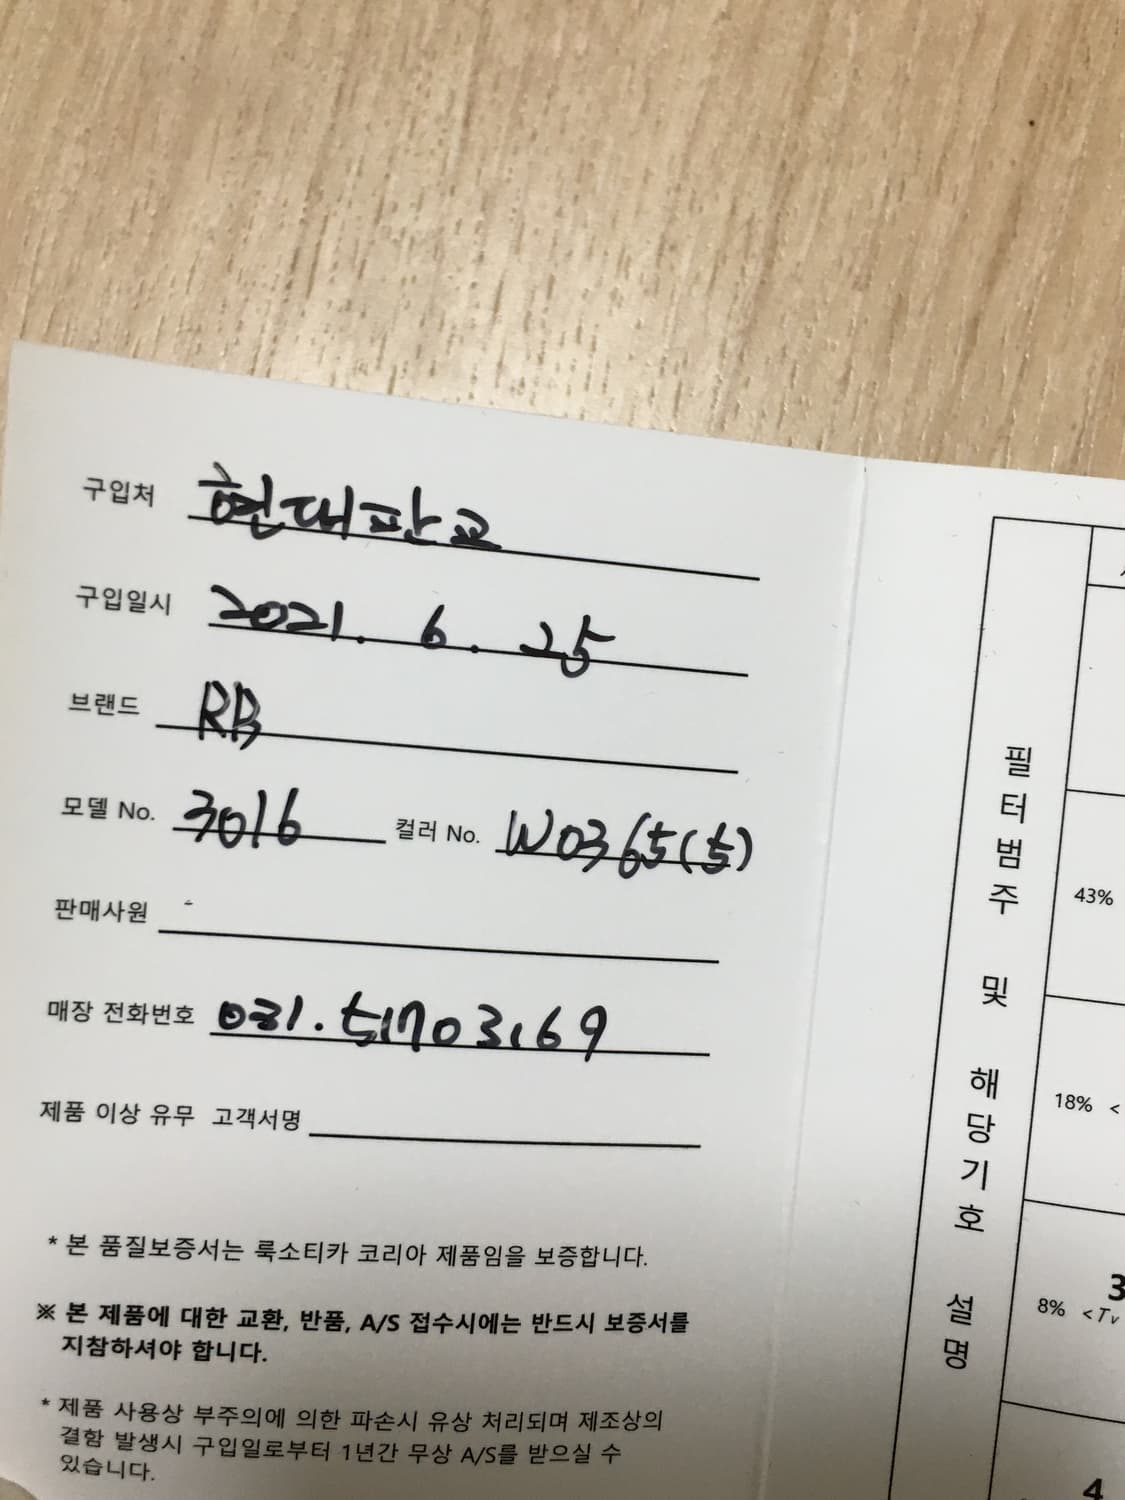 구입처 현대판교
구입일시 2021. 6. 25
브랜드 RB
모델 No. 3016 컬러 No. W0365(5)
판매사원
매장 전화번호 031.51703169
제품 이상 유무 고객서명
* 본 품질보증서는 룩소티카 코리아 제품임을 보증합니다.
※ 본 제품에 대한 교환, 반품, A/S 접수시에는 반드시 보증서를
지참하셔야 합니다.
* 제품 사용상 부주의에 의한 파손시 유상 처리되며 제조상의
결함 발생시 구입일로부터 1년간 무상 A/S를 받으실 수
있습니다.
필터범주 및 해당기호 설명
43%
18% <
3
8% <Tv
4